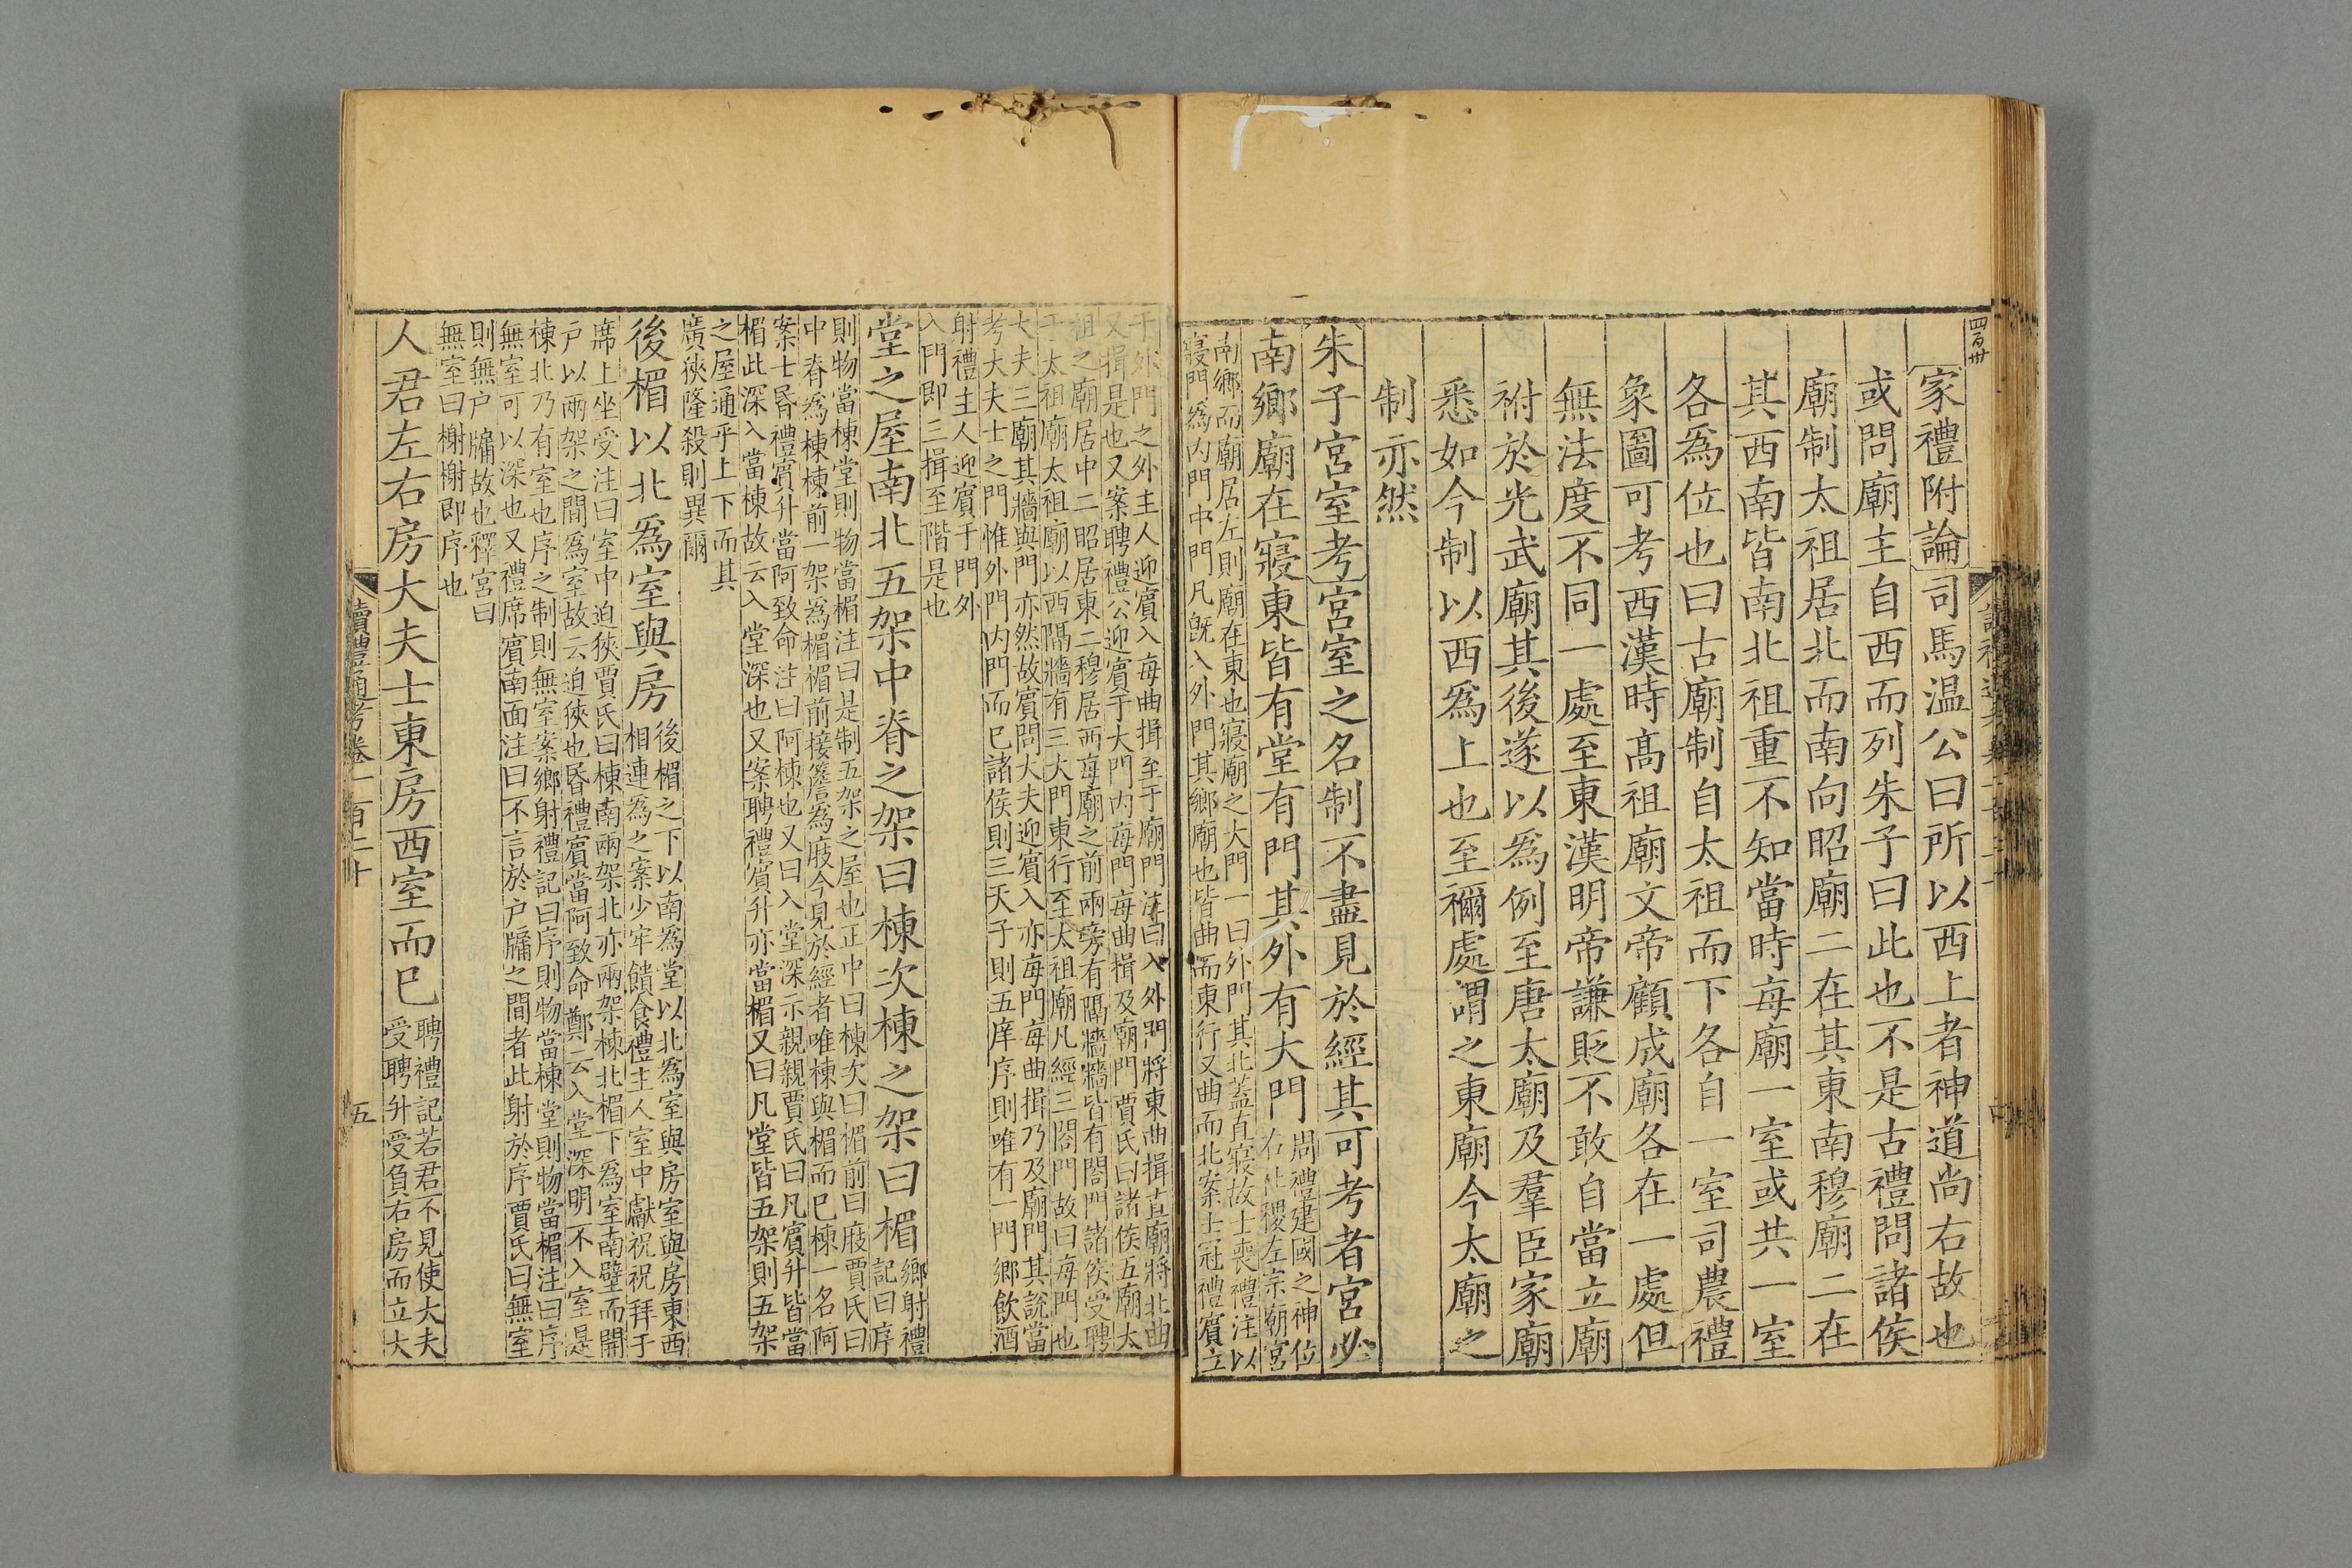 四百卅
家禮附論司馬温公曰所以西上者神道尚右故也
或問廟主自西而列朱子曰此也不是古禮問諸侯
廟制太祖居北而南向昭廟二在其東南穆廟二在
其西南皆南北祖重不知當時每廟一室或共一室
各爲位也曰古廟制自太祖而下各自一室司農禮
象圖可考西漢時髙祖廟文帝顧成廟各在一處但
無法度不同一處至東漢明帝謙貶不敢自當立廟
祔於光武廟其後遂以爲例至唐太廟及羣臣家廟
悉如今制以西爲上也至禰處謂之東廟今太廟之
制亦然
朱子宮室考宮室之名制不盡見於經其可考者宮必
南鄉廟在寢東皆有堂有門其外有大門
周禮建國之神位
右社稷左宗廟宮
南鄉而廟居左則廟在東也寢廟之大門一曰外門其北蓋直寢故士喪禮注以
寢門爲内門中門凡旣入外門其鄉廟也皆曲而東行又曲而北案士冠禮賓立
于外門之外主人迎賓入每曲揖至于廟門注曰入外門將東曲揖直廟將北曲
又揖是也又案聘禮公迎賓于大門内每門每曲揖及廟門賈氏曰諸侯五廟太
祖之廟居中二昭居東二穆居西每廟之前兩旁有隔牆牆皆有閤門諸侯受聘
于太祖廟太祖廟以西隔牆有三大門東行至太祖廟凡經三閤門故曰每門也
大夫三廟其牆與門亦然故賓問大夫迎賓入亦每門每曲揖乃及廟門其説當
考大夫士之門惟外門内門而已諸侯則三天子則五庠序則唯有一門鄉飲酒
射禮主人迎賓于門外
入門即三揖至階是也
堂之屋南北五架中脊之架曰棟次棟之架曰楣
鄉射禮
記曰序
則物當棟堂則物當楣注曰是制五架之屋也正中曰棟次曰楣前曰庪賈氏曰
中脊爲棟棟前一架爲楣楣前接簷爲庪今見於經者唯棟與楣而已棟一名阿
案士昏禮賓升當阿致命注曰阿棟也又曰入堂深示親親賈氏曰凡賓升皆當
楣此深入當棟故云入堂深也又案聘禮賓升亦當楣又曰凡堂皆五架則五架
之屋通乎上下而其
廣狹隆殺則異爾
後楣以北爲室與房
後楣之下以南爲堂以北爲室與房室與房東西
相連爲之案少牢饋食禮主人室中獻祝祝拜于
席上坐受注曰室中迫狹賈氏曰棟南兩架北亦兩架棟北楣下爲室南壁而開
户以兩架之間爲室故云迫狹也昏禮賓當阿致命鄭云入堂深明不入室是
棟北乃有室也序之制則無室案鄉射禮記曰序則物當棟堂則物當楣注曰序
無室可以深也又禮席賓南面注曰不言於户牖之間者此射於序賈氏曰無室
則無户牖故也釋宮曰
無室曰榭榭即序也
人君左右房大夫士東房西室而已
聘禮記若君不見使大夫
受聘升受負右房而立大
讀禮通考卷一百二十
五